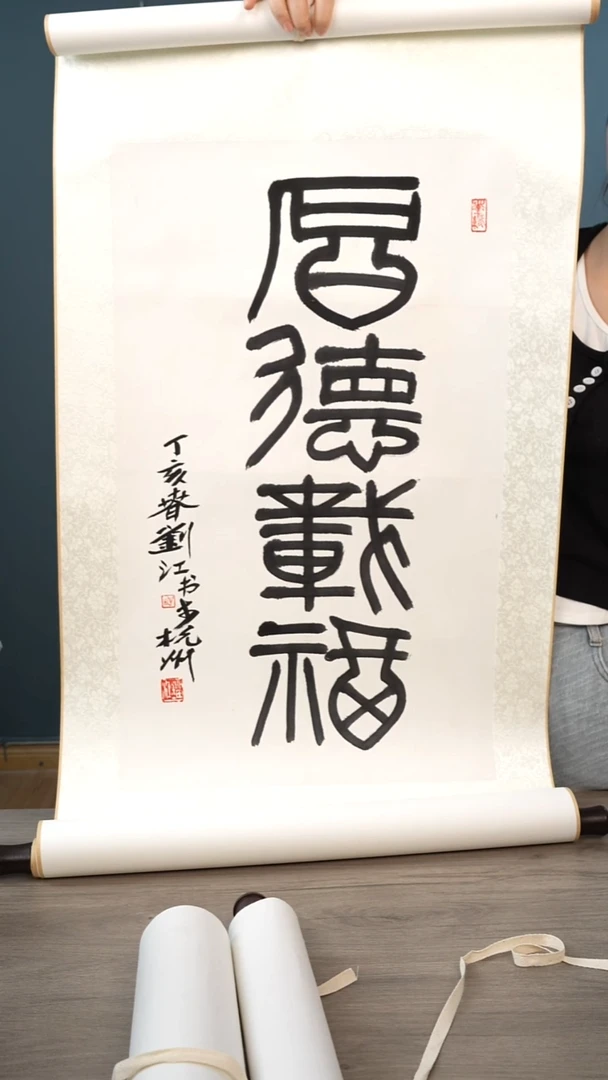 厚德載福
丁亥春劉江书于杭州